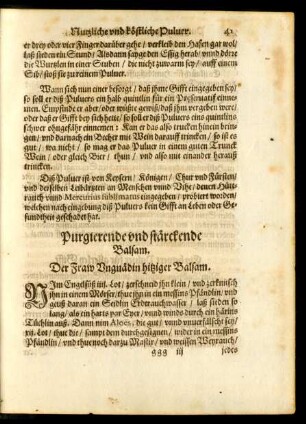 Nutzliche vnd köstliche Puluer. 41
er drey oder vier Finger darüber gehe / verkleib den Hafen gar wol/
laß sieden ein Stund / Alsdann seyge den Essig herab / vnnd dörre
die Wurtzlen in einer Stuben / die nicht zuwarm sey / auff einem
Sib / stoß sie zu reinem Puluer.
Wann sich nun einer besorgt / daß jhme Gifft eingegeben sey/
so soll er diß Puluers ein halb quintlin für ein Preseruatiff einne-
men. Empfinde er aber / oder wüste gewiß / daß jhm vergeben wer/
oder daß er Gifft bey sich hette / so soll er diß Puluers eins quintlins
schwer ohngefähr einnemen: Kan er das also trucken hinein brin-
gen / vnd darnach ein Becher mit Wein darauff trincken / so ist es
gut / wa nicht / so mag er das Puluer in einem guten Trunck
Wein / oder gleich Bier / thun / vnd also mit einander herauß
trincken.
Diß Puluer ist von Keysern / Königen / Chur vnd Fürsten/
vnd derselben Leibärtzten an Menschen vnnd Vihe / deren Hütt-
rauch vnnd Mercurium sublimatum eingegeben / probiert worden/
welchen nach eingebung diß Puluers kein Gifft an Leben oder Ge-
sundtheit geschadet hat.
Purgierende vnd stärckende
Balsam.
Der Fraw Vnguadin hitziger Balsam.
NIm Engelsüß iiij. Lot / zerschneid jhn klein / vnnd zerknirsch
jhn in einem Mörser / thue jhn in ein messins Pfändlin / vnd
geuß daran ein Seidlin Erdtrauchwasser / laß sieden so
lang / als ein harts par Eyer / vnnd winds durch ein härins
Tüchlin auß. Dann nim Aloës / die gut / vnnd vnuerfälscht sey/
xij. Lot / thue die / sampt dem durchgesignen / wider in ein messins
Pfändlin / vnd thue noch darzu Mastix / vnd weissen Weyrauch/
ggg iij jedes